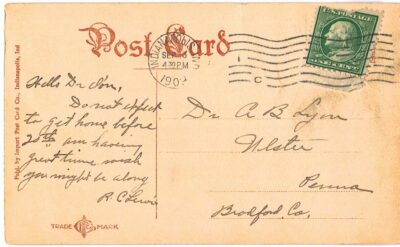 Post Card
INDIANAPOLIS
SEP 16
4 30 PM
1909
C
U.S. POSTAGE
ONE CENT
Publ. by Import Post Card Co., Indianapolis, Ind
Hello Dr
Do not expect
to get home before
20th am having
great time wish
you might be along
R. C. Lewis
Dr. A B Lyon
Ulster
Penna
Bradford, Co.
TRADE MARK